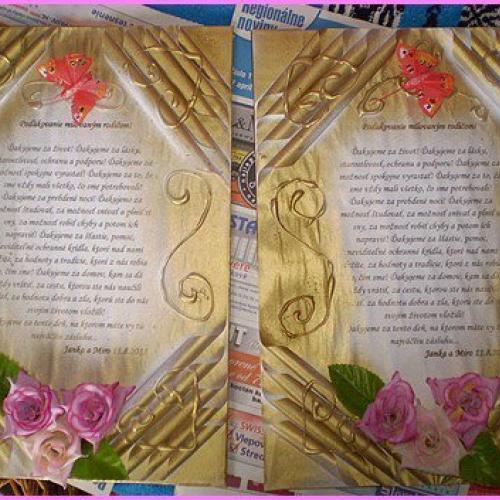 Regionálne
noviny
Poďakovanie milovaným rodičom!
Ďakujeme za život! Ďakujeme za lásku,
starostlivosť, ochranu a podporu! Ďakujeme za
možnosť spokojne vyrastať! Ďakujeme za to, že
sme vždy mali všetko, čo sme potrebovali!
Ďakujeme za prebdené noci! Ďakujeme za
možnosť študovať, za možnosť cestovať a plniť si
sny, za možnosť robiť chyby a potom ich
napraviť! Ďakujeme za šťastie, pomoc,
neviditeľné ochranné krídla, ktoré nad nami
držíte, za hodnoty a tradície, ktoré z nás robia
tým, čím sme! Ďakujeme za domov, kam sa dá
vždy vrátiť, za cestu, ktorú ste nás naučili
ísť, za hodnotu dobra a zla, ktorú ste do nás
svojím životom vložili!
Ďakujeme za tento deň, na ktorom máte vy tú
najväčšiu zásluhu...
Janka a Miro
Poďakovanie milovaným rodičom!
Ďakujeme za život! Ďakujeme za lásku,
starostlivosť, ochranu a podporu! Ďakujeme za
možnosť spokojne vyrastať! Ďakujeme za to, že
sme vždy mali všetko, čo sme potrebovali!
Ďakujeme za prebdené noci! Ďakujeme za
možnosť študovať, za možnosť cestovať a plniť si
sny, za možnosť robiť chyby a potom ich
napraviť! Ďakujeme za šťastie, pomoc,
neviditeľné ochranné krídla, ktoré nad nami
držíte, za hodnoty a tradície, ktoré z nás robia
tým, čím sme! Ďakujeme za domov, kam sa dá
vždy vrátiť, za cestu, ktorú ste nás naučili
ísť, za hodnotu dobra a zla, ktorú ste do nás
svojím životom vložili!
Ďakujeme za tento deň, na ktorom máte vy tú
najväčšiu zásluhu...
Janka a Miro